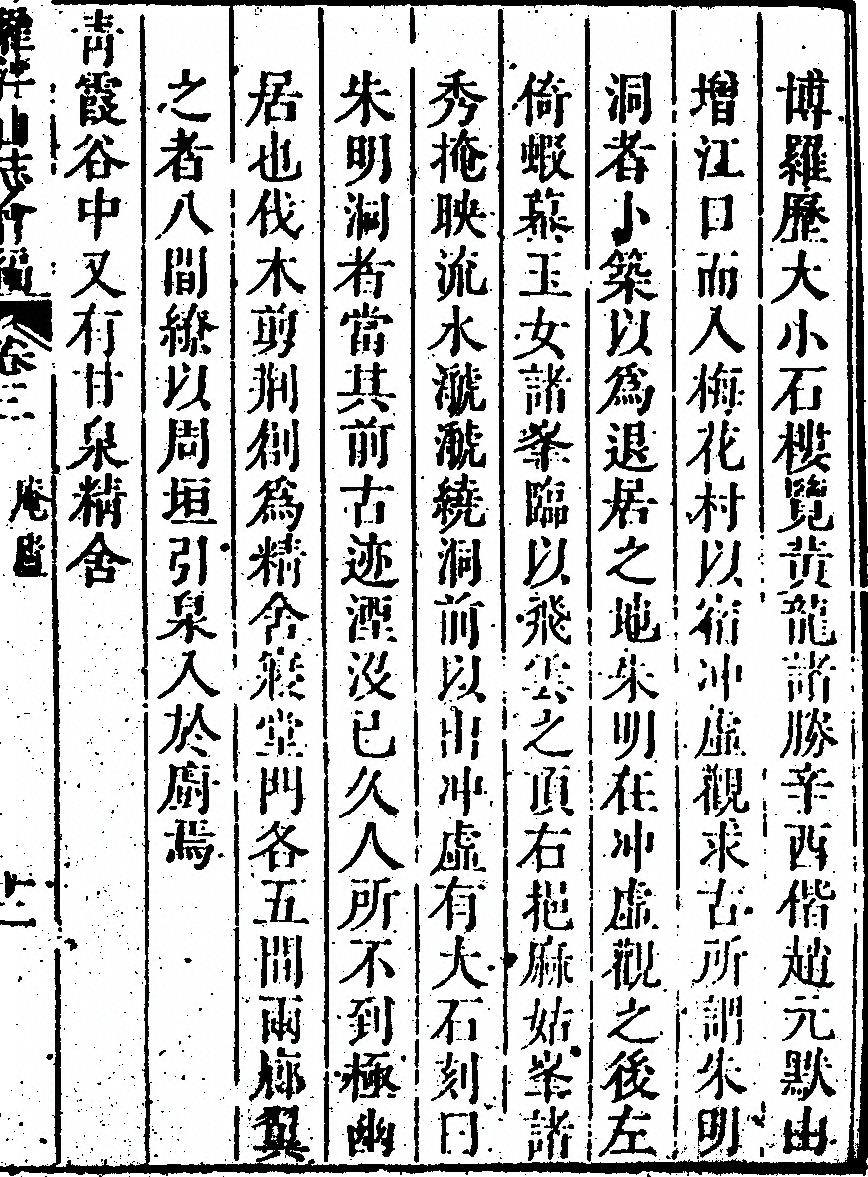 博羅歷大小石樓覽黄龍諸勝辛酉偕趙元默由
增江口而入梅花村以宿冲虛觀求古所謂朱明
洞者卜築以為退居之地朱明在冲虛觀之後左
倚蝦蟇玉女諸峯臨以飛雲之頂右挹麻姑峯諸
秀掩映流水㶁㶁繞洞前以出冲虛有大石刻曰
朱明洞者當其前古迹湮沒已久人所不到極幽
居也伐木剪荆創為精舍寢堂門各五間兩廊翼
之者八間繚以周垣引泉入於廚焉
青霞谷中又有甘泉精舍
羅浮山志會編 卷三 十二